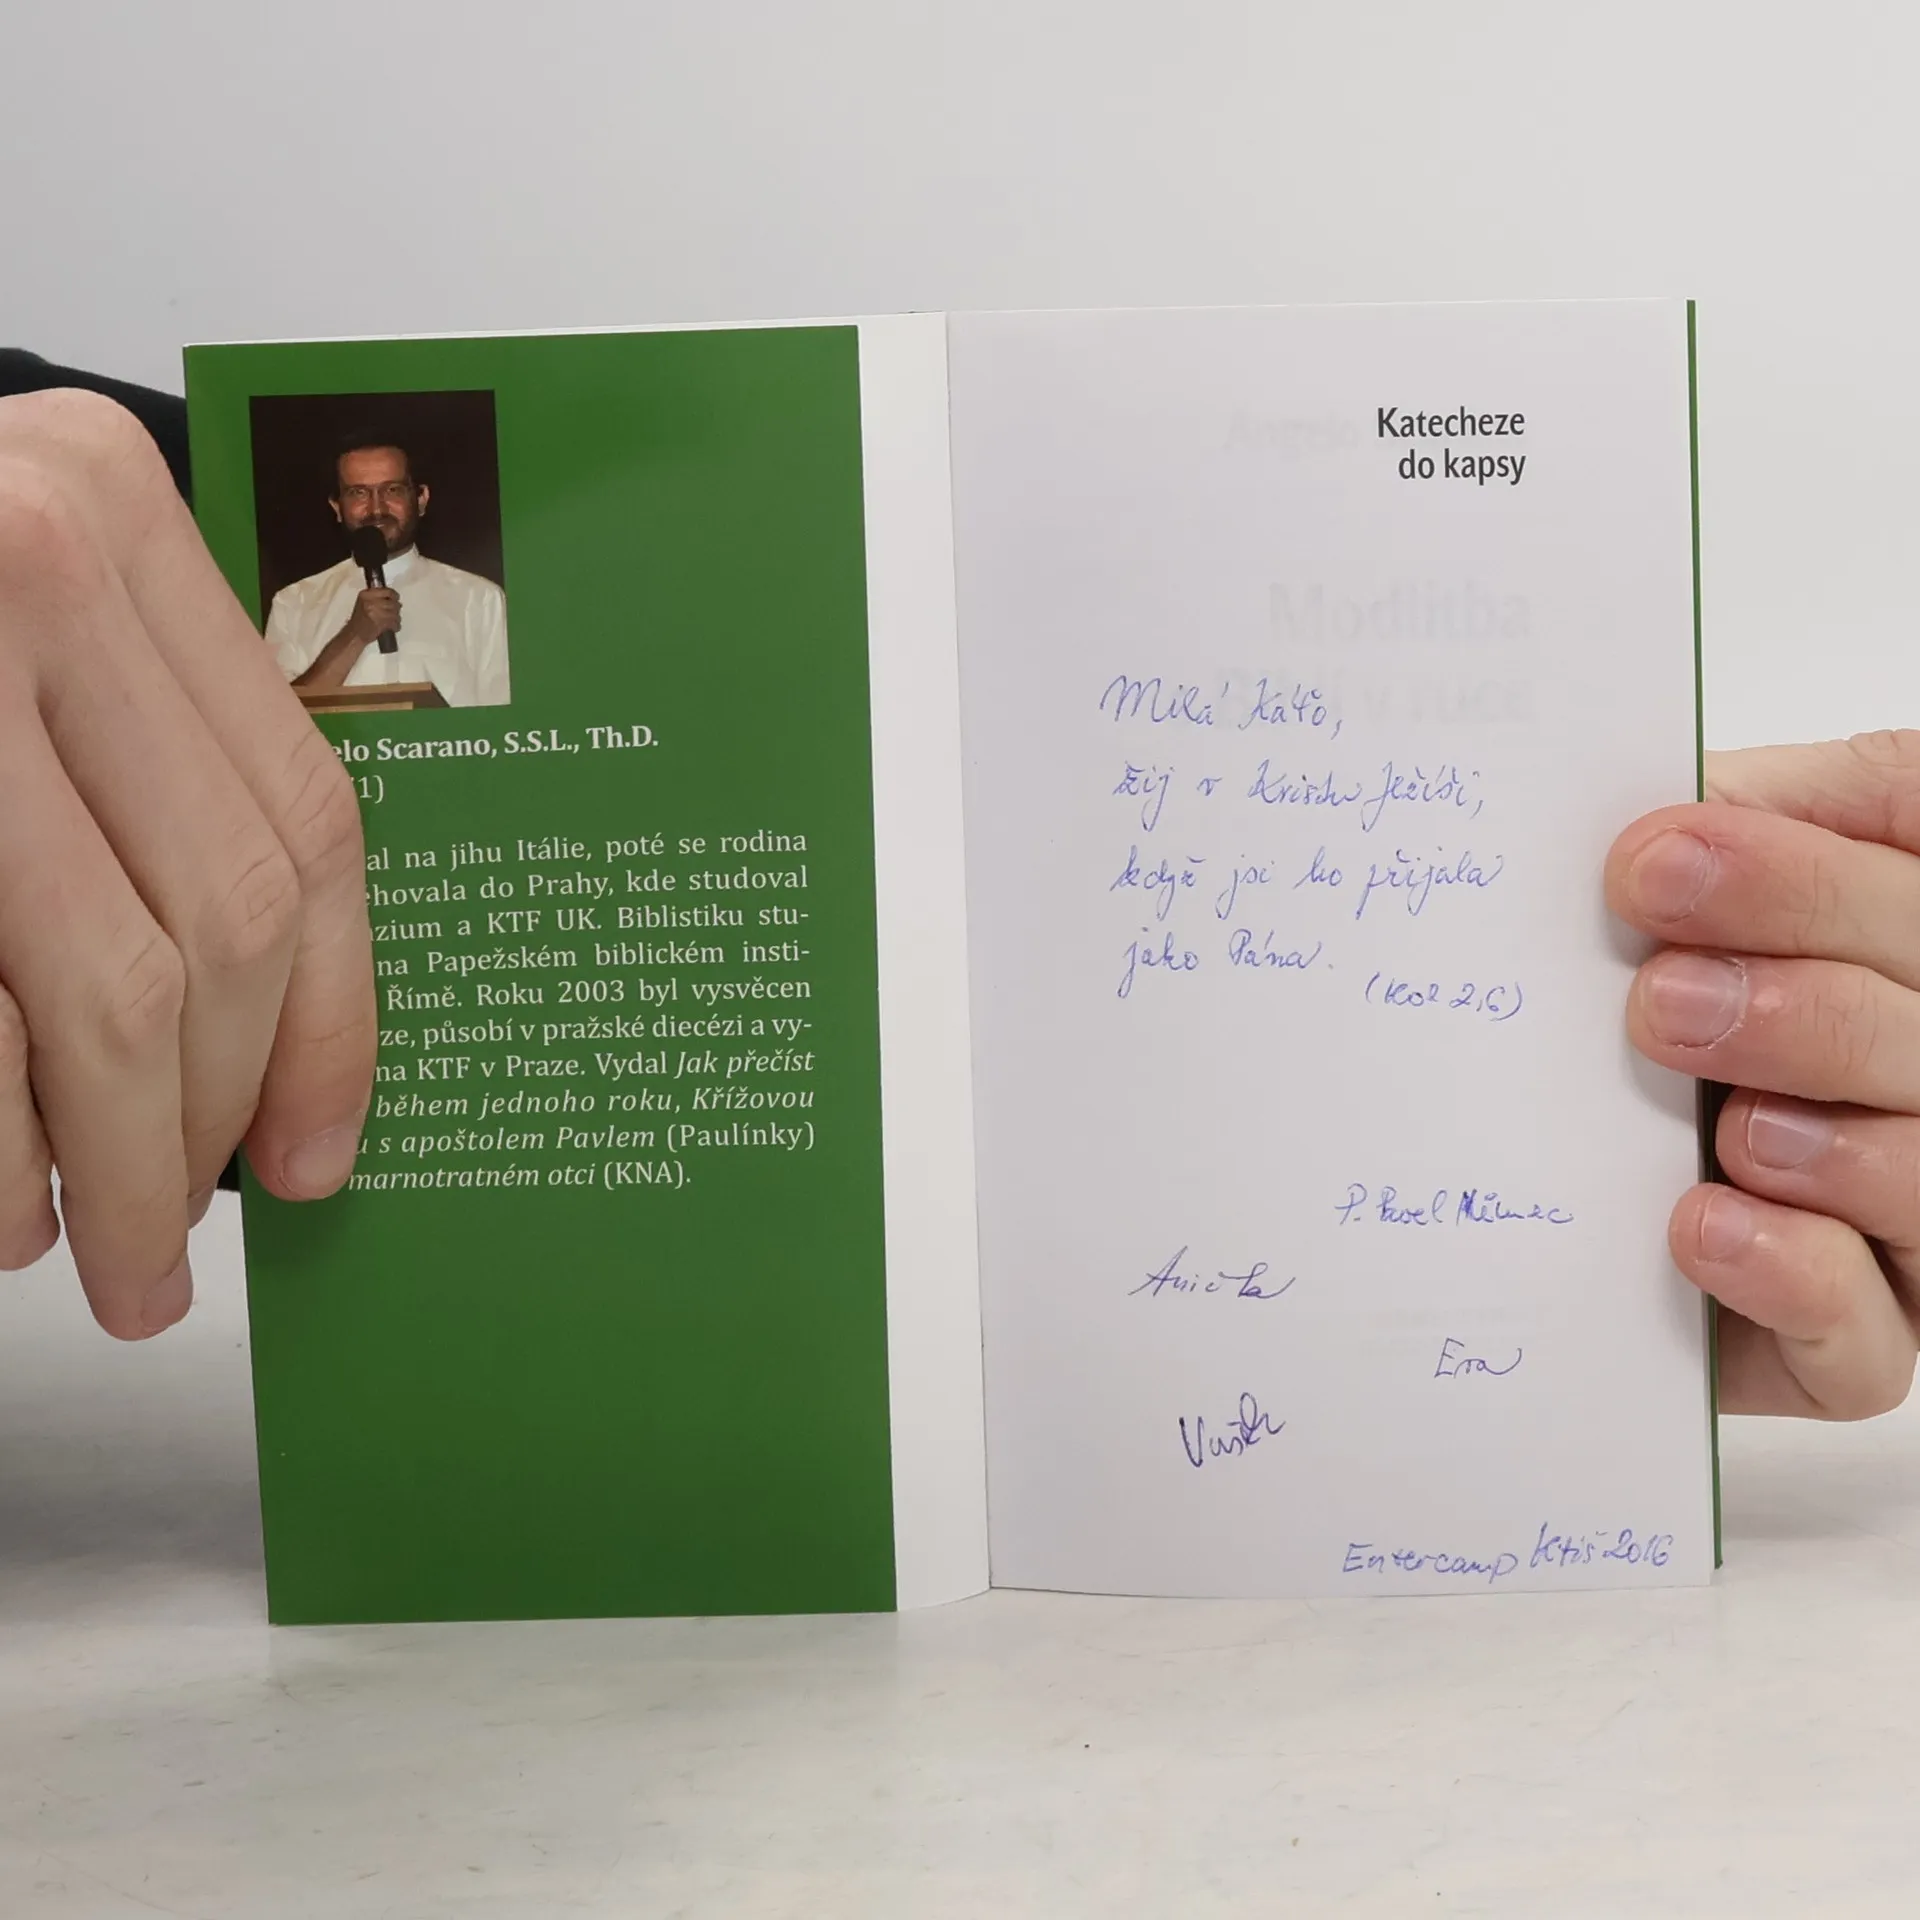 elo Scarano, S.S.L., Th.D.
1)
al na jihu Itálie, poté se rodina
ěhovala do Prahy, kde studoval
zium a KTF UK. Biblistiku stu-
na Papežském biblickém insti-
Římě. Roku 2003 byl vysvěcen
ze, působí v pražské diecézi a vy-
na KTF v Praze. Vydal Jak přečíst
během jednoho roku, Křížovou
u s apoštolem Pavlem (Paulínky)
marnotratném otci (KNA).
Katecheze
do kapsy
Modlitba
Biblí v ruce
Milá Káťo,
žij v Kristu Ježíši,
když jsi ho přijala
jako Pána.
(Kol 2,6)
P. Pavel Němec
Anička
Eva
Vašek
Entercamp Ktiš 2016